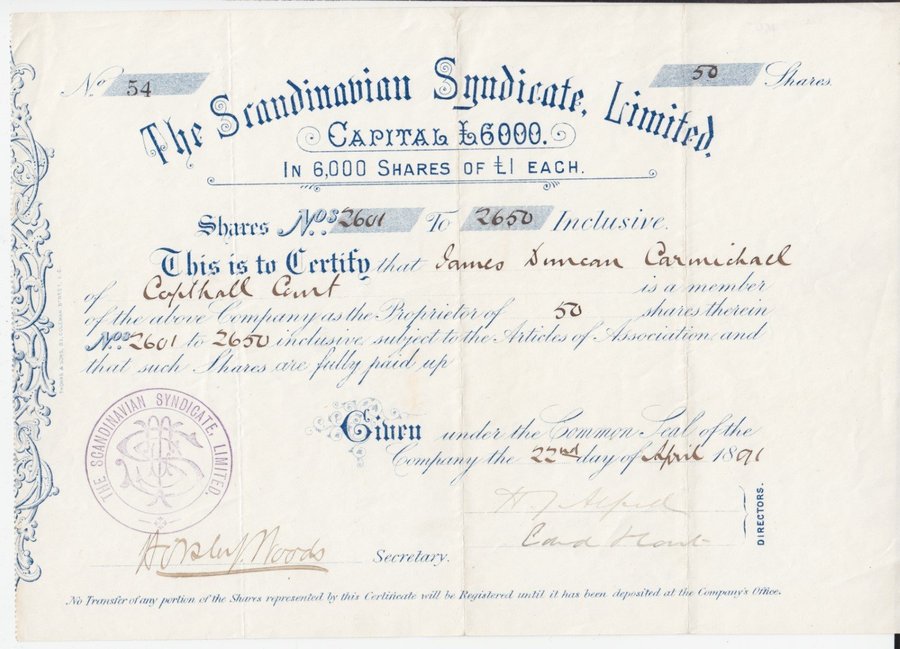 No. 54
50 Shares.
The Scandinavian Syndicate, Limited.
CAPITAL £6000.
IN 6,000 SHARES OF £1 EACH.
Shares Nos. 2601 To 2650 Inclusive.
This is to Certify that James Duncan Carmichael
of Copthall Court is a member
of the above Company as the Proprietor of 50 shares therein
Nos. 2601 to 2650 inclusive subject to the Articles of Association and
that such Shares are fully paid up
THE SCANDINAVIAN SYNDICATE, LIMITED.
Given under the Common Seal of the
Company the 22nd day of April 1891
DIRECTORS.
Woods Secretary.
No Transfer of any portion of the Shares represented by this Certificate will be Registered until it has been deposited at the Company's Office.